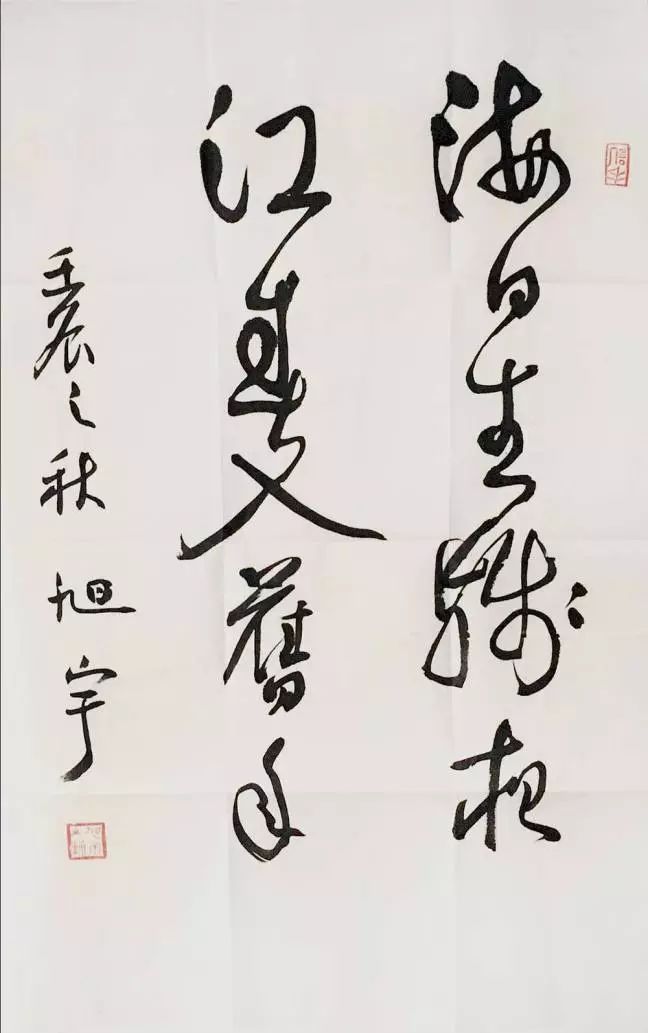 海日生殘夜
江春入舊年
壬辰之秋 旭宇